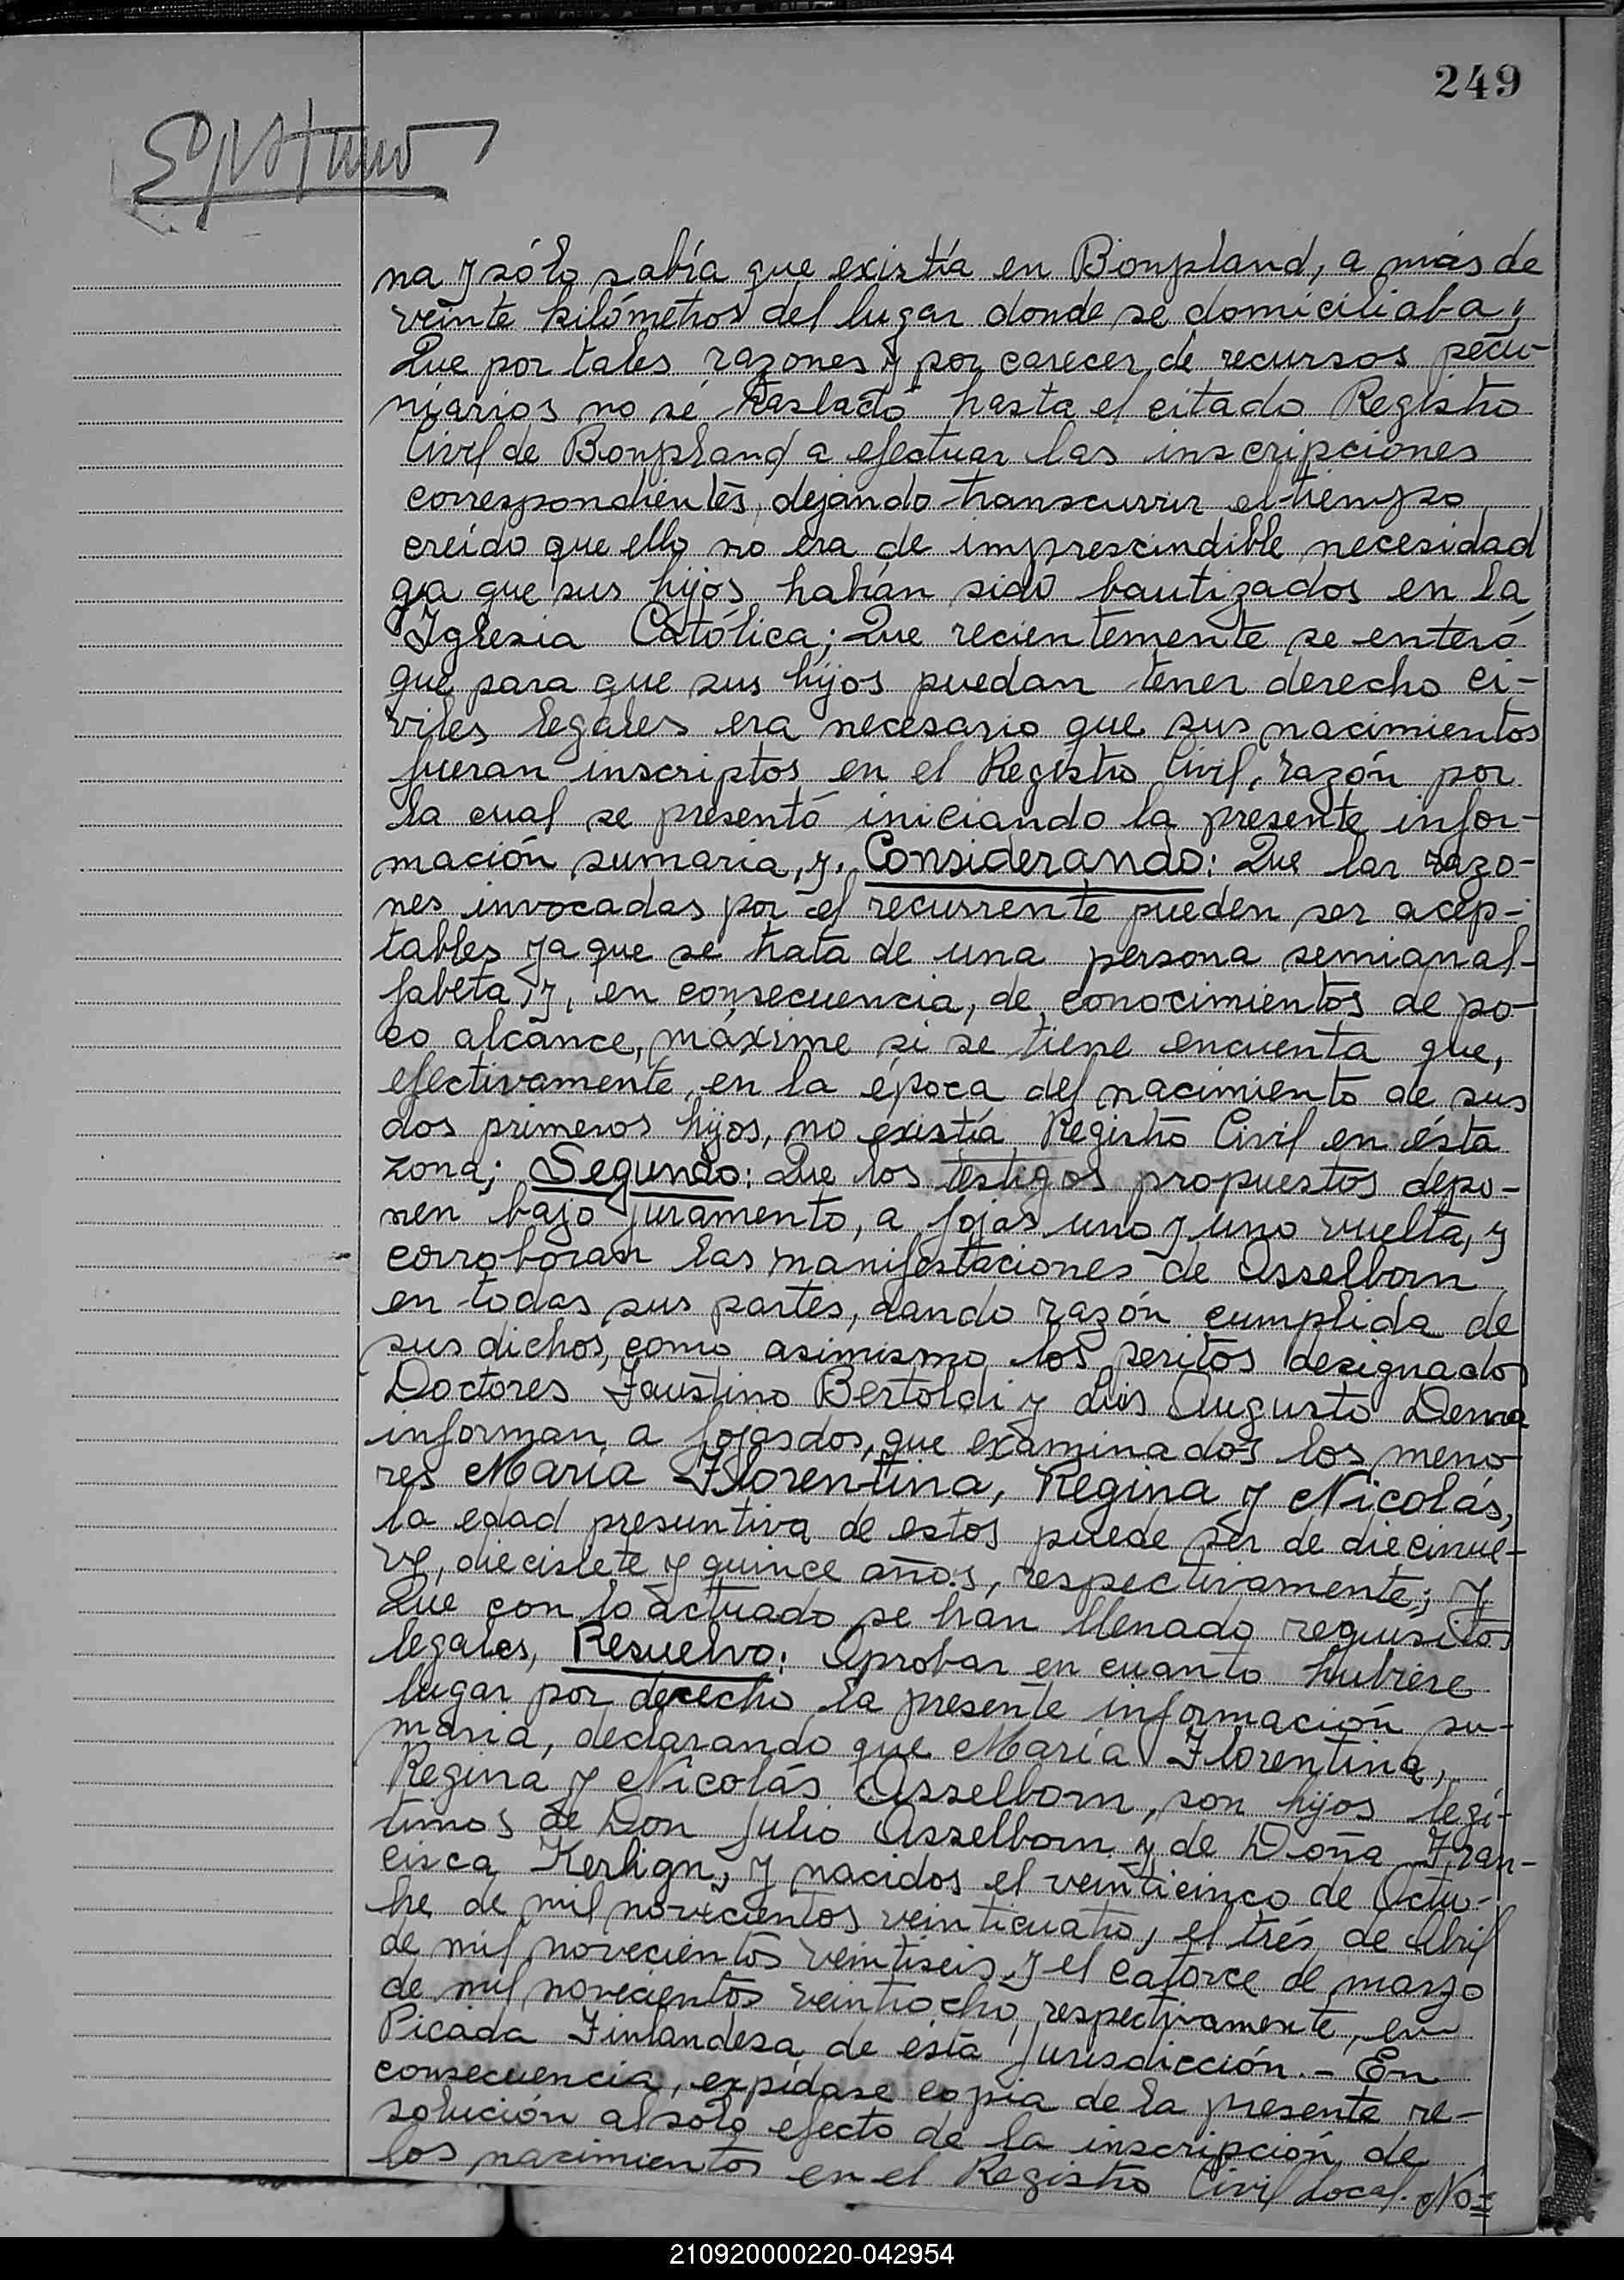 249
na y sólo sabía que existía en Bonpland, a más de
veinte kilómetros del lugar donde se domiciliaba;
Que por tales razones y por carecer de recursos pecu-
niarios no se trasladó hasta el citado Registro
Civil de Bonpland a efectuar las inscripciones
correspondientes, dejando transcurrir el tiempo
creído que ello no era de imprescindible necesidad
ya que sus hijos habían sido bautizados en la
Iglesia Católica; Que recientemente se enteró
que para que sus hijos puedan tener derecho ci-
viles legales era necesario que sus nacimientos
fueran inscriptos en el Registro Civil, razón por
la cual se presentó iniciando la presente infor-
mación sumaria, y, Considerando: Que las razo-
nes invocadas por el recurrente pueden ser acep-
tables ya que se trata de una persona semianal-
fabeta, y, en consecuencia, de conocimientos de po-
co alcance, máxime si se tiene encuenta que,
efectivamente, en la época del nacimiento de sus
dos primeros hijos, no existía Registro Civil en ésta
zona; Segundo: Que los testigos propuestos depo-
nen bajo juramento, a fojas uno y uno vuelta, y
corroboran las manifestaciones de Asselborn
en todas sus partes, dando razón cumplida de
sus dichos, como asimismo los peritos designados
Doctores Faustino Bertoldi y Luis Augusto Derna
informan a fojas dos, que examinados los meno-
res María Florentina, Regina y Nicolás,
la edad presuntiva de estos puede ser de diecinue-
ve, diecisiete y quince años, respectivamente; y
Que con lo actuado se han llenado requisitos
legales, Resuelvo: Aprobar en cuanto hubiere
lugar por derecho la presente información su-
maria, declarando que María Florentina,
Regina y Nicolás Asselborn, son hijos legí-
timos de Don Julio Asselborn y de Doña Fran-
cisca Kerlign, y nacidos el veinticinco de Octu-
bre de mil novecientos veinticuatro, el trés de Abril
de mil novecientos veintiseis y el catorce de marzo
de mil novecientos veintiocho, respectivamente, en
Picada Finlandesa de ésta Jurisdicción.- En
consecuencia, expídase copia de la presente re-
solución al sólo efecto de la inscripción de
los nacimientos en el Registro Civil Local. No=
210920000220-042954